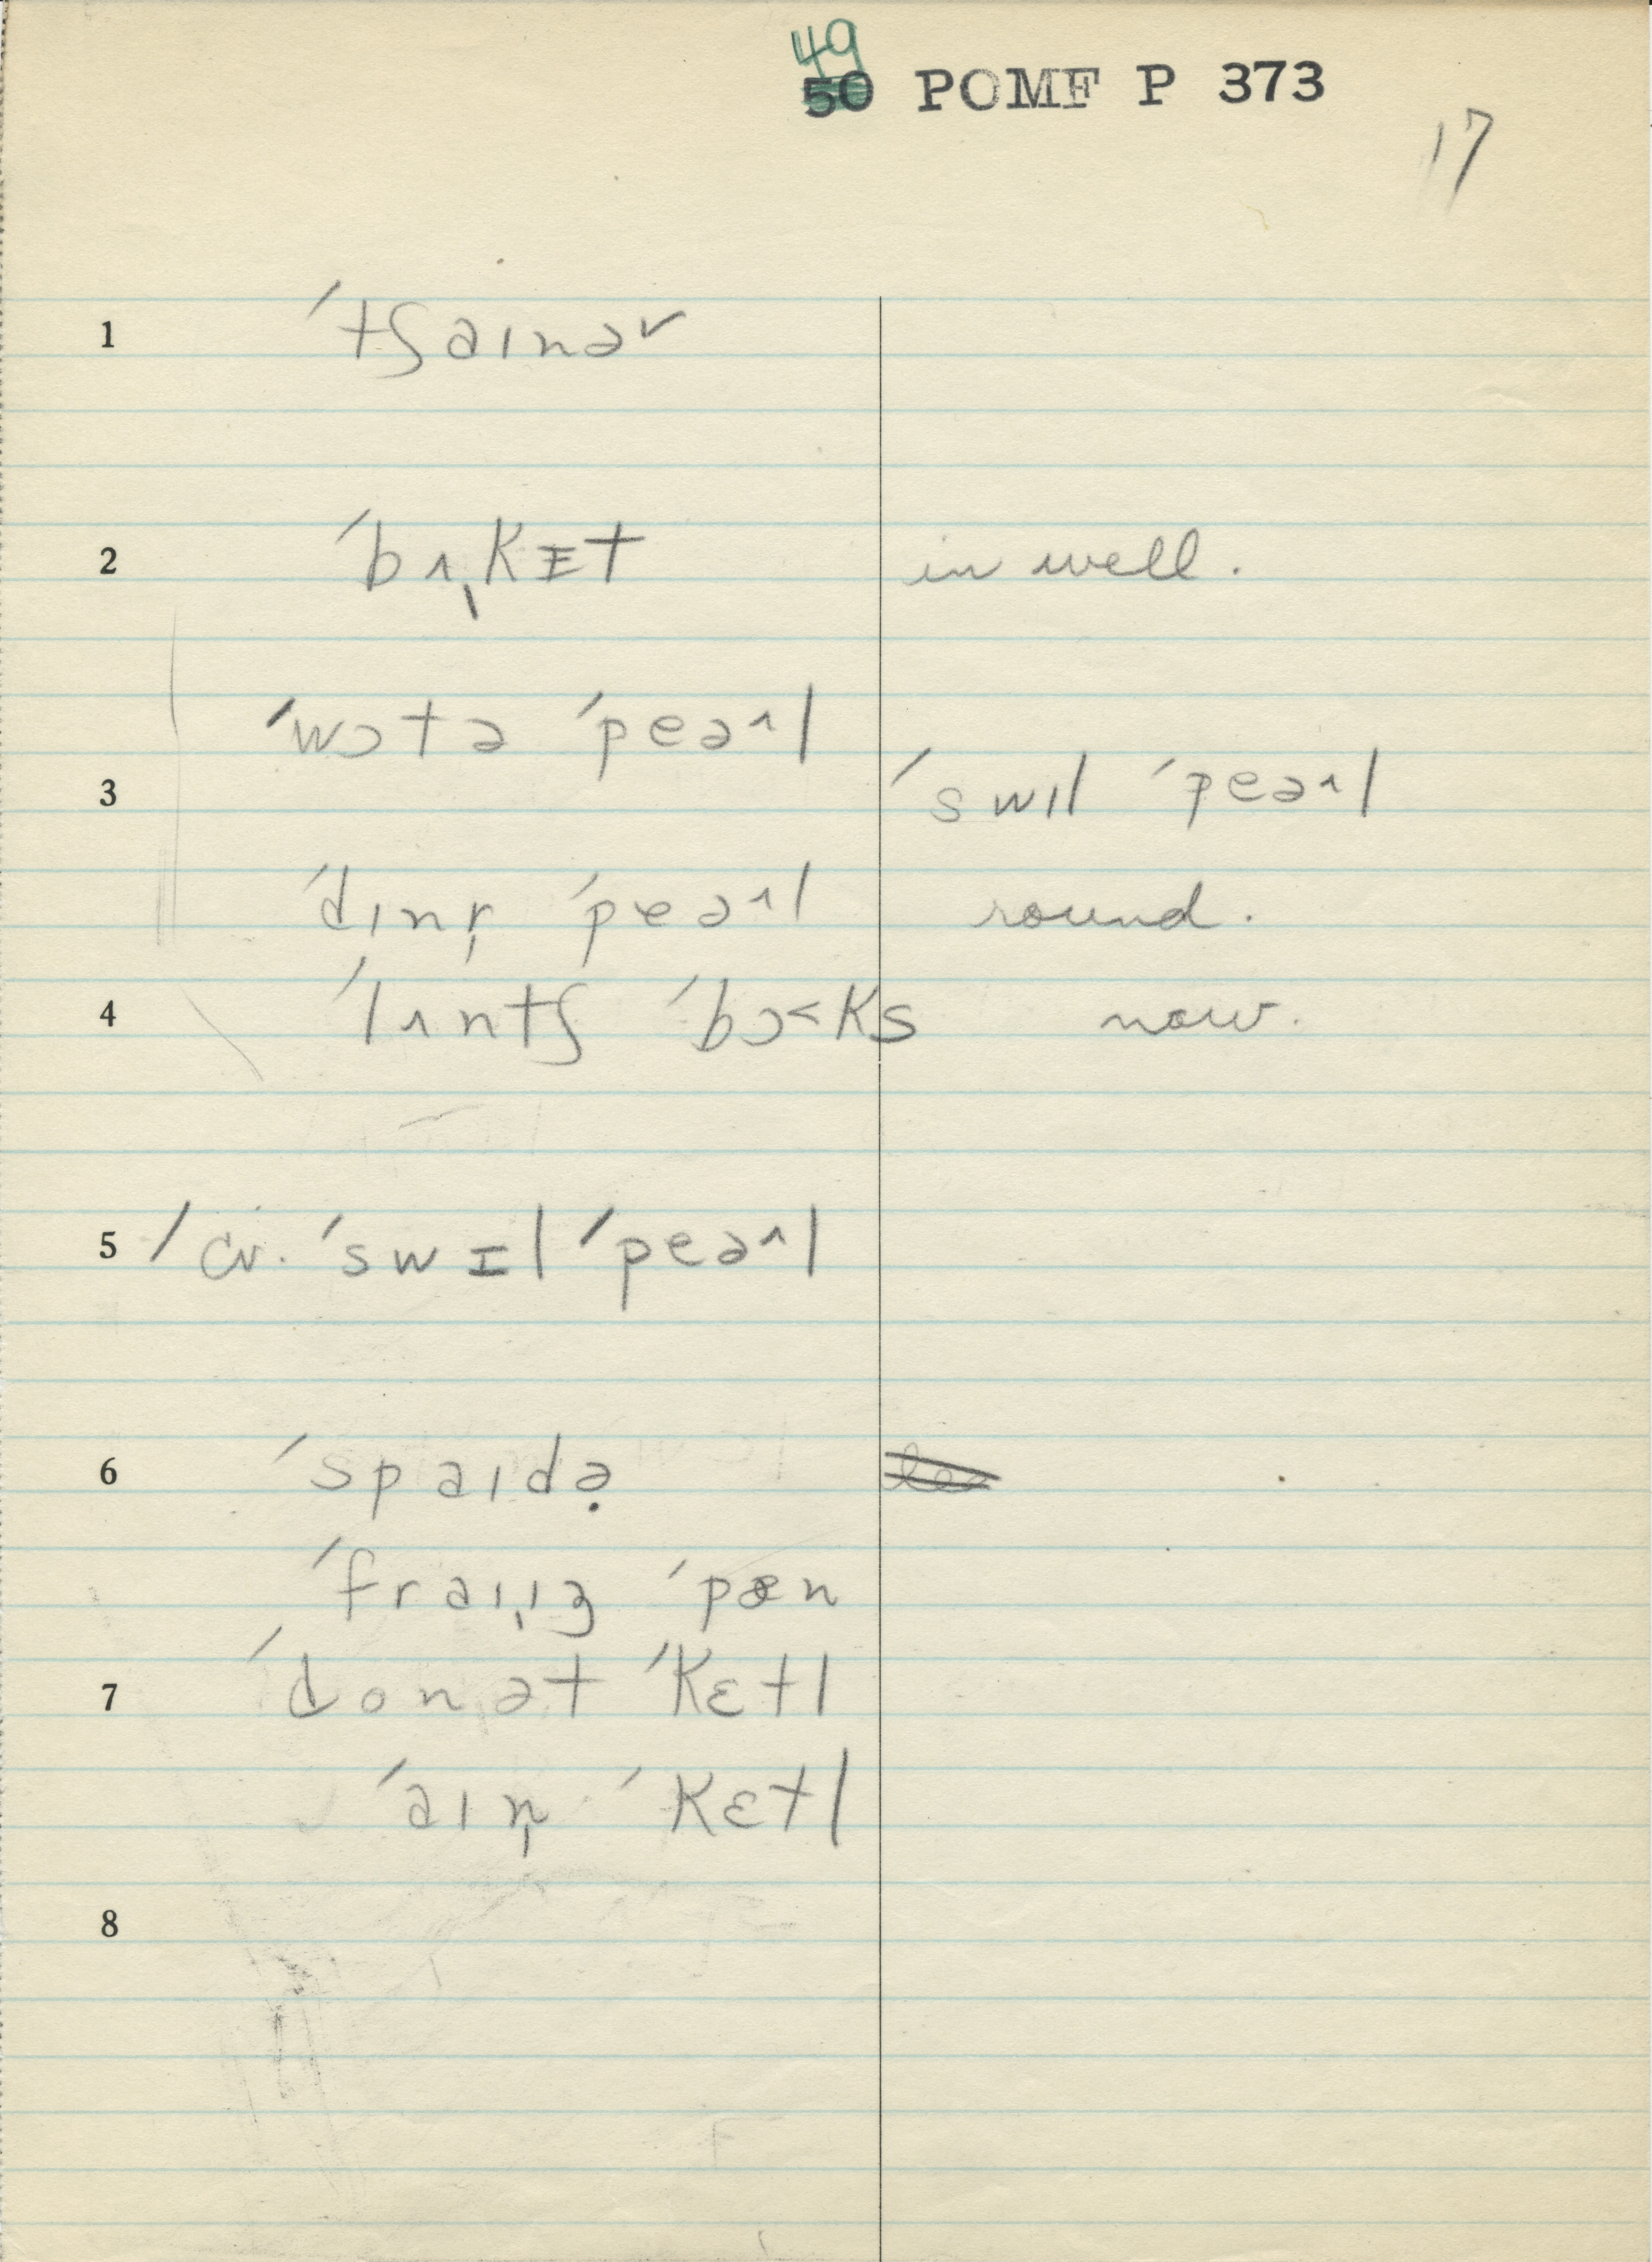 49
50 POMF P 373
17
1 ˈtʃaɪnəˇ
2 ˈbʌ̩kɪ̵t in well.
ˈwɔtə ˈpeəˆl
3 ˈswɪl ˈpeəˆl
ˈdɪnr̩ ˈpeəˆl round.
4 ˈlʌntʃ ˈbɔ˂ks now.
5 / cv. ˈswɪl ˈpeəˆl
6 ˈspaɪdə̣
ˈfraɪ̩ɪŋ ˈpæn
7 ˈdonət ˈkɛtl
ˈaɪn̩ ˈkɛtl
8